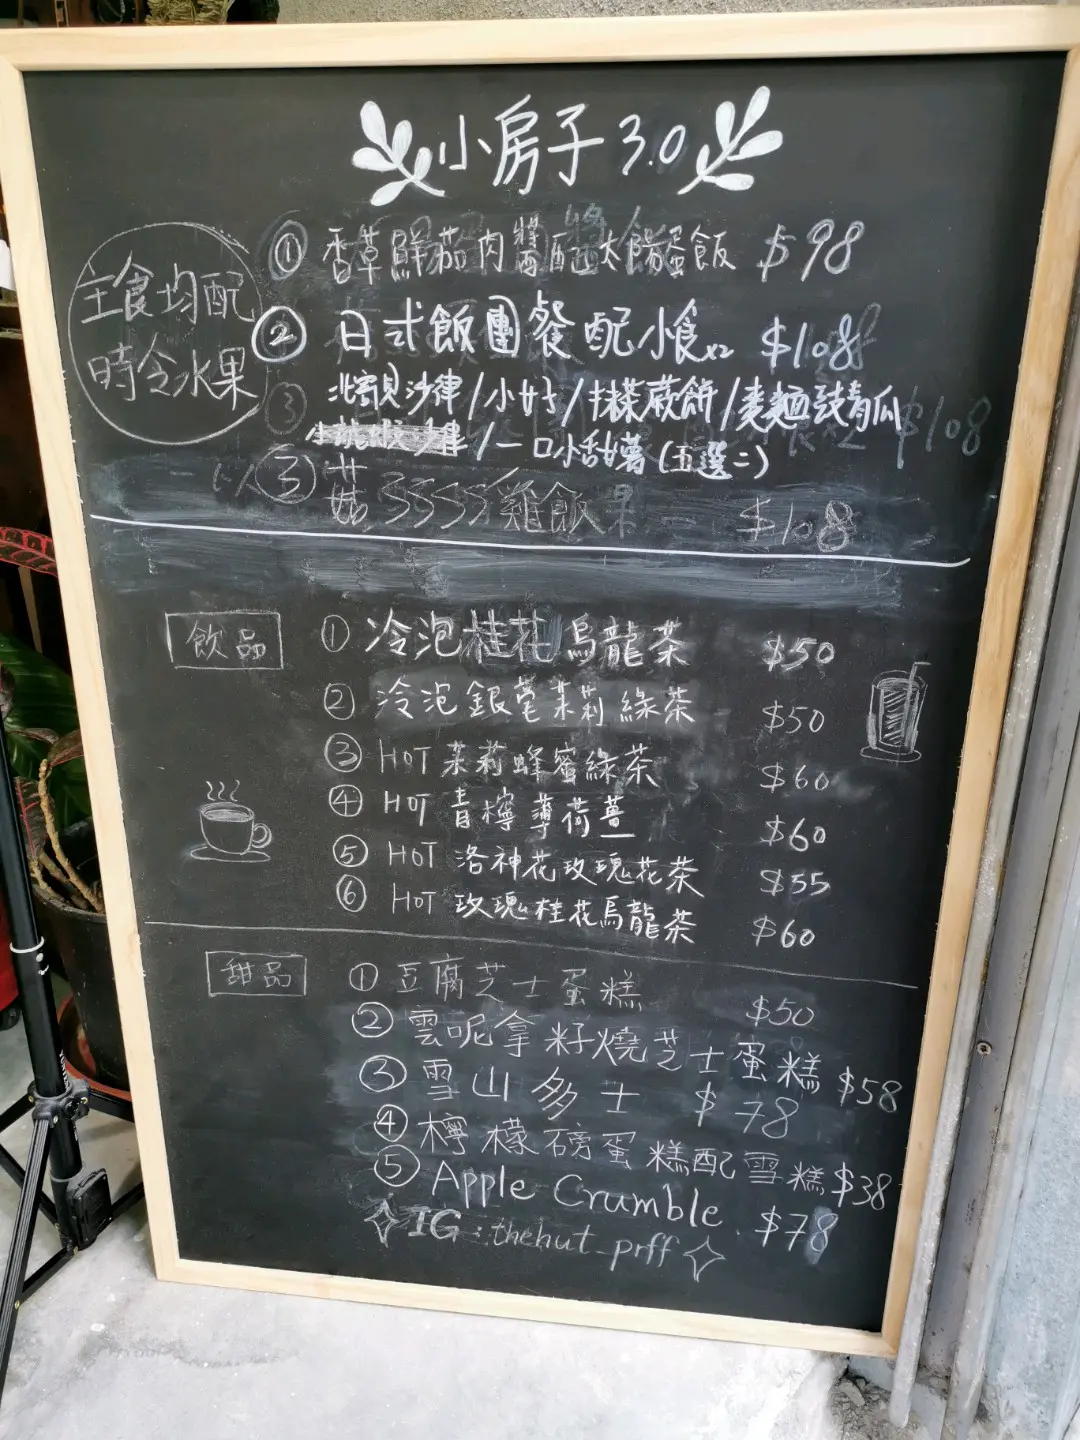 小房子 3.0
主食均配
時令水果
① 香草鮮茄肉醬配太陽蛋飯 $98
② 日式飯團餐配小食x2 $108
北寄貝沙律/小好/抹茶蕨餅/麥麵豉青瓜
/一口小甜薯(五選二)
③ 菇 雞飯 $108
飲品
① 冷泡桂花烏龍茶 $50
② 冷泡銀毫茉莉綠茶 $50
③ HOT 茉莉蜂蜜綠茶 $60
④ HOT 青檸薄荷薑 $60
⑤ HOT 洛神花玫瑰花茶 $55
⑥ HOT 玫瑰桂花烏龍茶 $60
甜品
① 豆腐芝士蛋糕 $50
② 雲呢拿籽燒芝士蛋糕 $58
③ 雪山多士 $78
④ 檸檬磅蛋糕配雪糕 $38
⑤ Apple Crumble $78
IG : thehut_prff